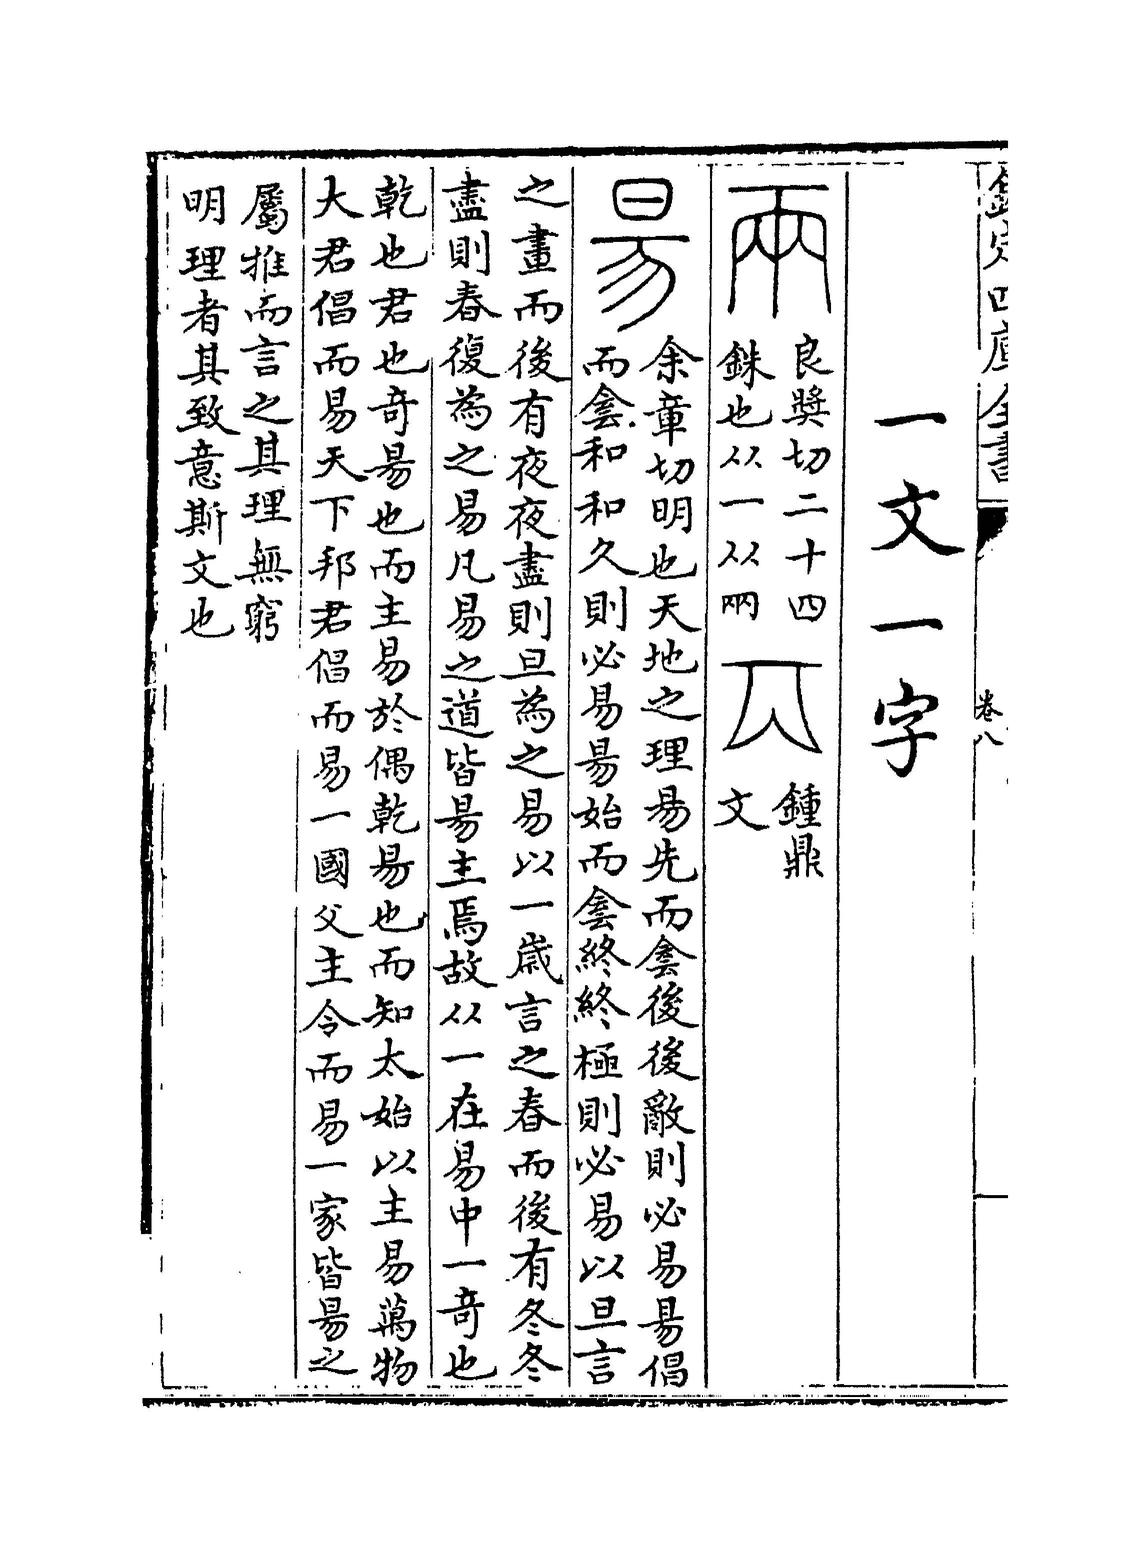 欽定四庫全書 卷八
一文一字
兩
良奨切二十四
銖也从一从㒳
鍾鼎
文
昜
余章切明也天地之理昜先而侌後後敵則必易昜倡
而侌和和久則必易昜始而侌終終極則必易以旦言
之晝而後有夜夜盡則旦為之易以一歲言之春而後有冬冬
盡則春復為之易凡易之道皆昜主焉故从一在易中一奇也
乾也君也奇昜也而主易於偶乾昜也而知太始以主易萬物
大君倡而易天下邦君倡而易一國父主令而易一家皆昜之
屬推而言之其理無窮
明理者其致意斯文也